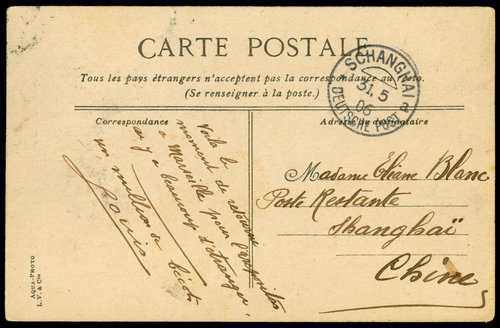 CARTE POSTALE
Tous les pays étrangers n'acceptent pas la correspondance au recto.
(Se renseigner à la poste.)
SCHANGHAI
31.5
06
a
DEUTSCHE POST
Correspondance
Adresse du destinataire
Voilà le
moment de
à Marseille pour l'exposition
il y a beaucoup d'étranger.
un million de
Louis
Madame Eliane Blanc
Poste Restante
Shanghaï
Chine
AQUA-PHOTO
L.V. & Cie